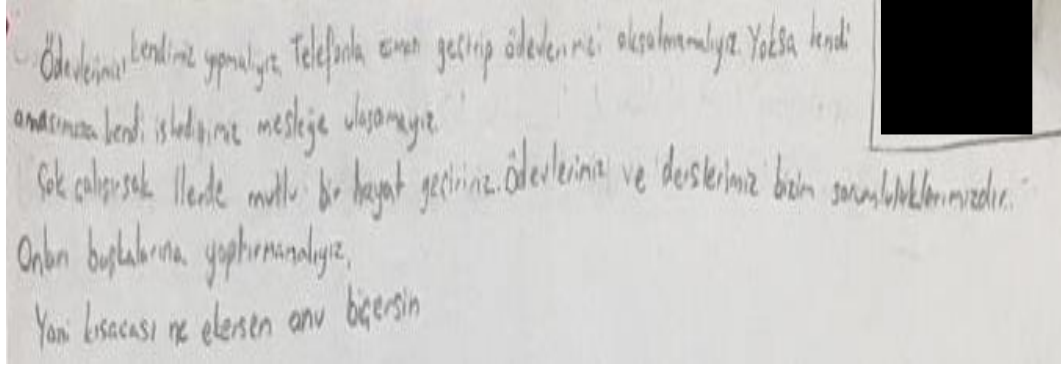 Ödevlerimizi kendimiz yapmalıyız. Telefonla zaman geçirip ödevlerimizi aksatmamalıyız. Yoksa kendi
kendi istediğimiz mesleğe ulaşamayız.
Çok çalışırsak ilerde mutlu bir hayat geçiririz. Ödevlerimiz ve derslerimiz bizim sorumluluklarımızdır.
Onları başkalarına yaptırmamalıyız.
Yani kısacası ne ekersen onu biçersin